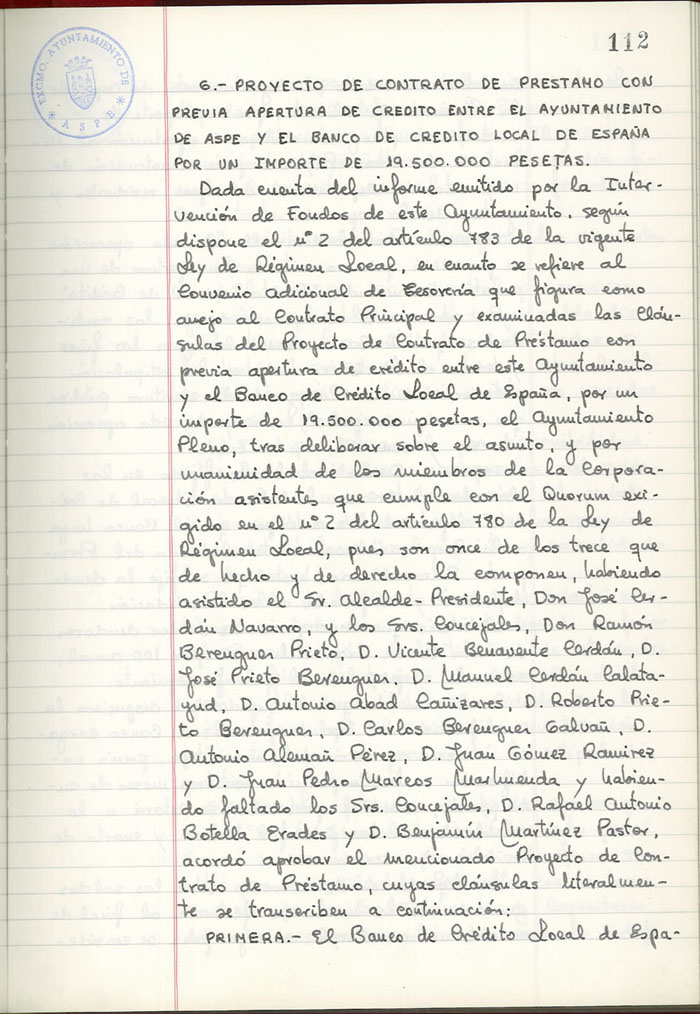 112
EXCMO. AYUNTAMIENTO DE
* ASPE *
6.- PROYECTO DE CONTRATO DE PRESTAMO CON
PREVIA APERTURA DE CREDITO ENTRE EL AYUNTAMIENTO
DE ASPE Y EL BANCO DE CREDITO LOCAL DE ESPAÑA
POR UN IMPORTE DE 19.500.000 PESETAS.
Dada cuenta del informe emitido por la Inter-
vención de Fondos de este Ayuntamiento, según
dispone el nº 2 del artículo 783 de la vigente
Ley de Régimen Local, en cuanto se refiere al
Convenio adicional de Tesorería que figura como
anejo al Contrato Principal y examinadas las Cláu-
sulas del Proyecto de Contrato de Préstamo con
previa apertura de crédito entre este Ayuntamiento
y el Banco de Crédito Local de España, por un
importe de 19.500.000 pesetas, el Ayuntamiento
Pleno, tras deliberar sobre el asunto, y por
unanimidad de los miembros de la Corpora-
ción asistentes que cumple con el Quorum exi-
gido en el nº 2 del artículo 780 de la Ley de
Régimen Local, pues son once de los trece que
de hecho y de derecho la componen, habiendo
asistido el Sr. Alcalde-Presidente, Don José Cer-
dán Navarro, y los Srs. Concejales, Don Ramón
Berenguer Prieto, D. Vicente Benavente Cerdán, D.
José Prieto Berenguer, D. Manuel Cerdán Calata-
yud, D. Antonio Abad Cañizares, D. Roberto Prie-
to Berenguer, D. Carlos Berenguer Galvañ, D.
Antonio Alemañ Pérez, D. Juan Gómez Ramirez
y D. Juan Pedro Marcos Marhuenda y habien-
do faltado los Srs. Concejales, D. Rafael Antonio
Botella Erades y D. Benjamín Martínez Pastor,
acordó aprobar el mencionado Proyecto de Con-
trato de Préstamo, cuyas cláusulas literalmen-
te se transcriben a continuación:
PRIMERA.- El Banco de Crédito Local de Espa-